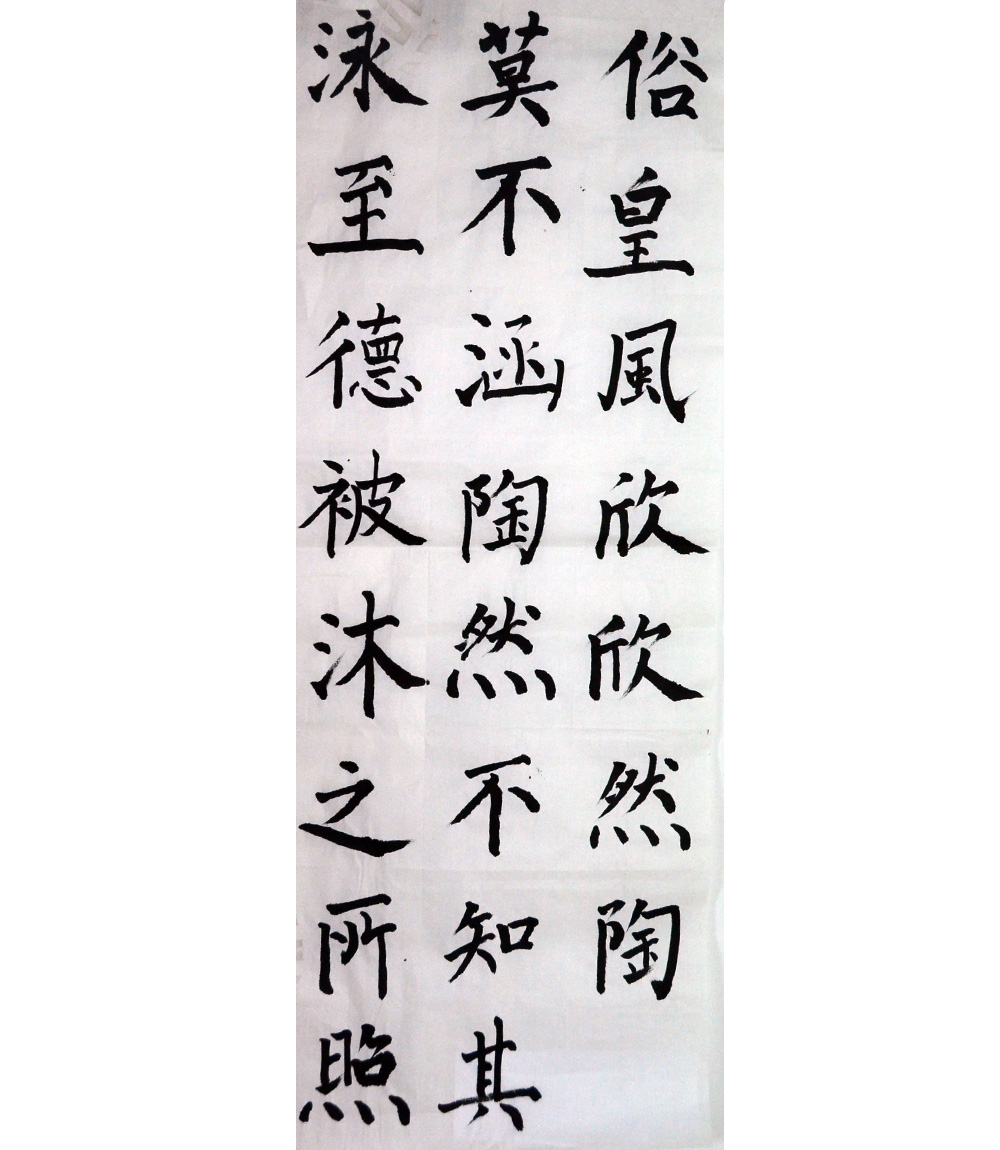 俗皇風欣欣然陶
莫不涵陶然不知其
泳至德被沐之所照